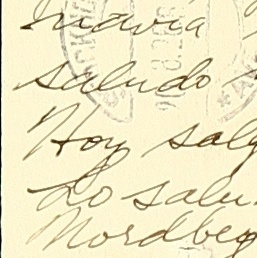 navia
saludo
Hoy salg
Lo salu
Nordberg